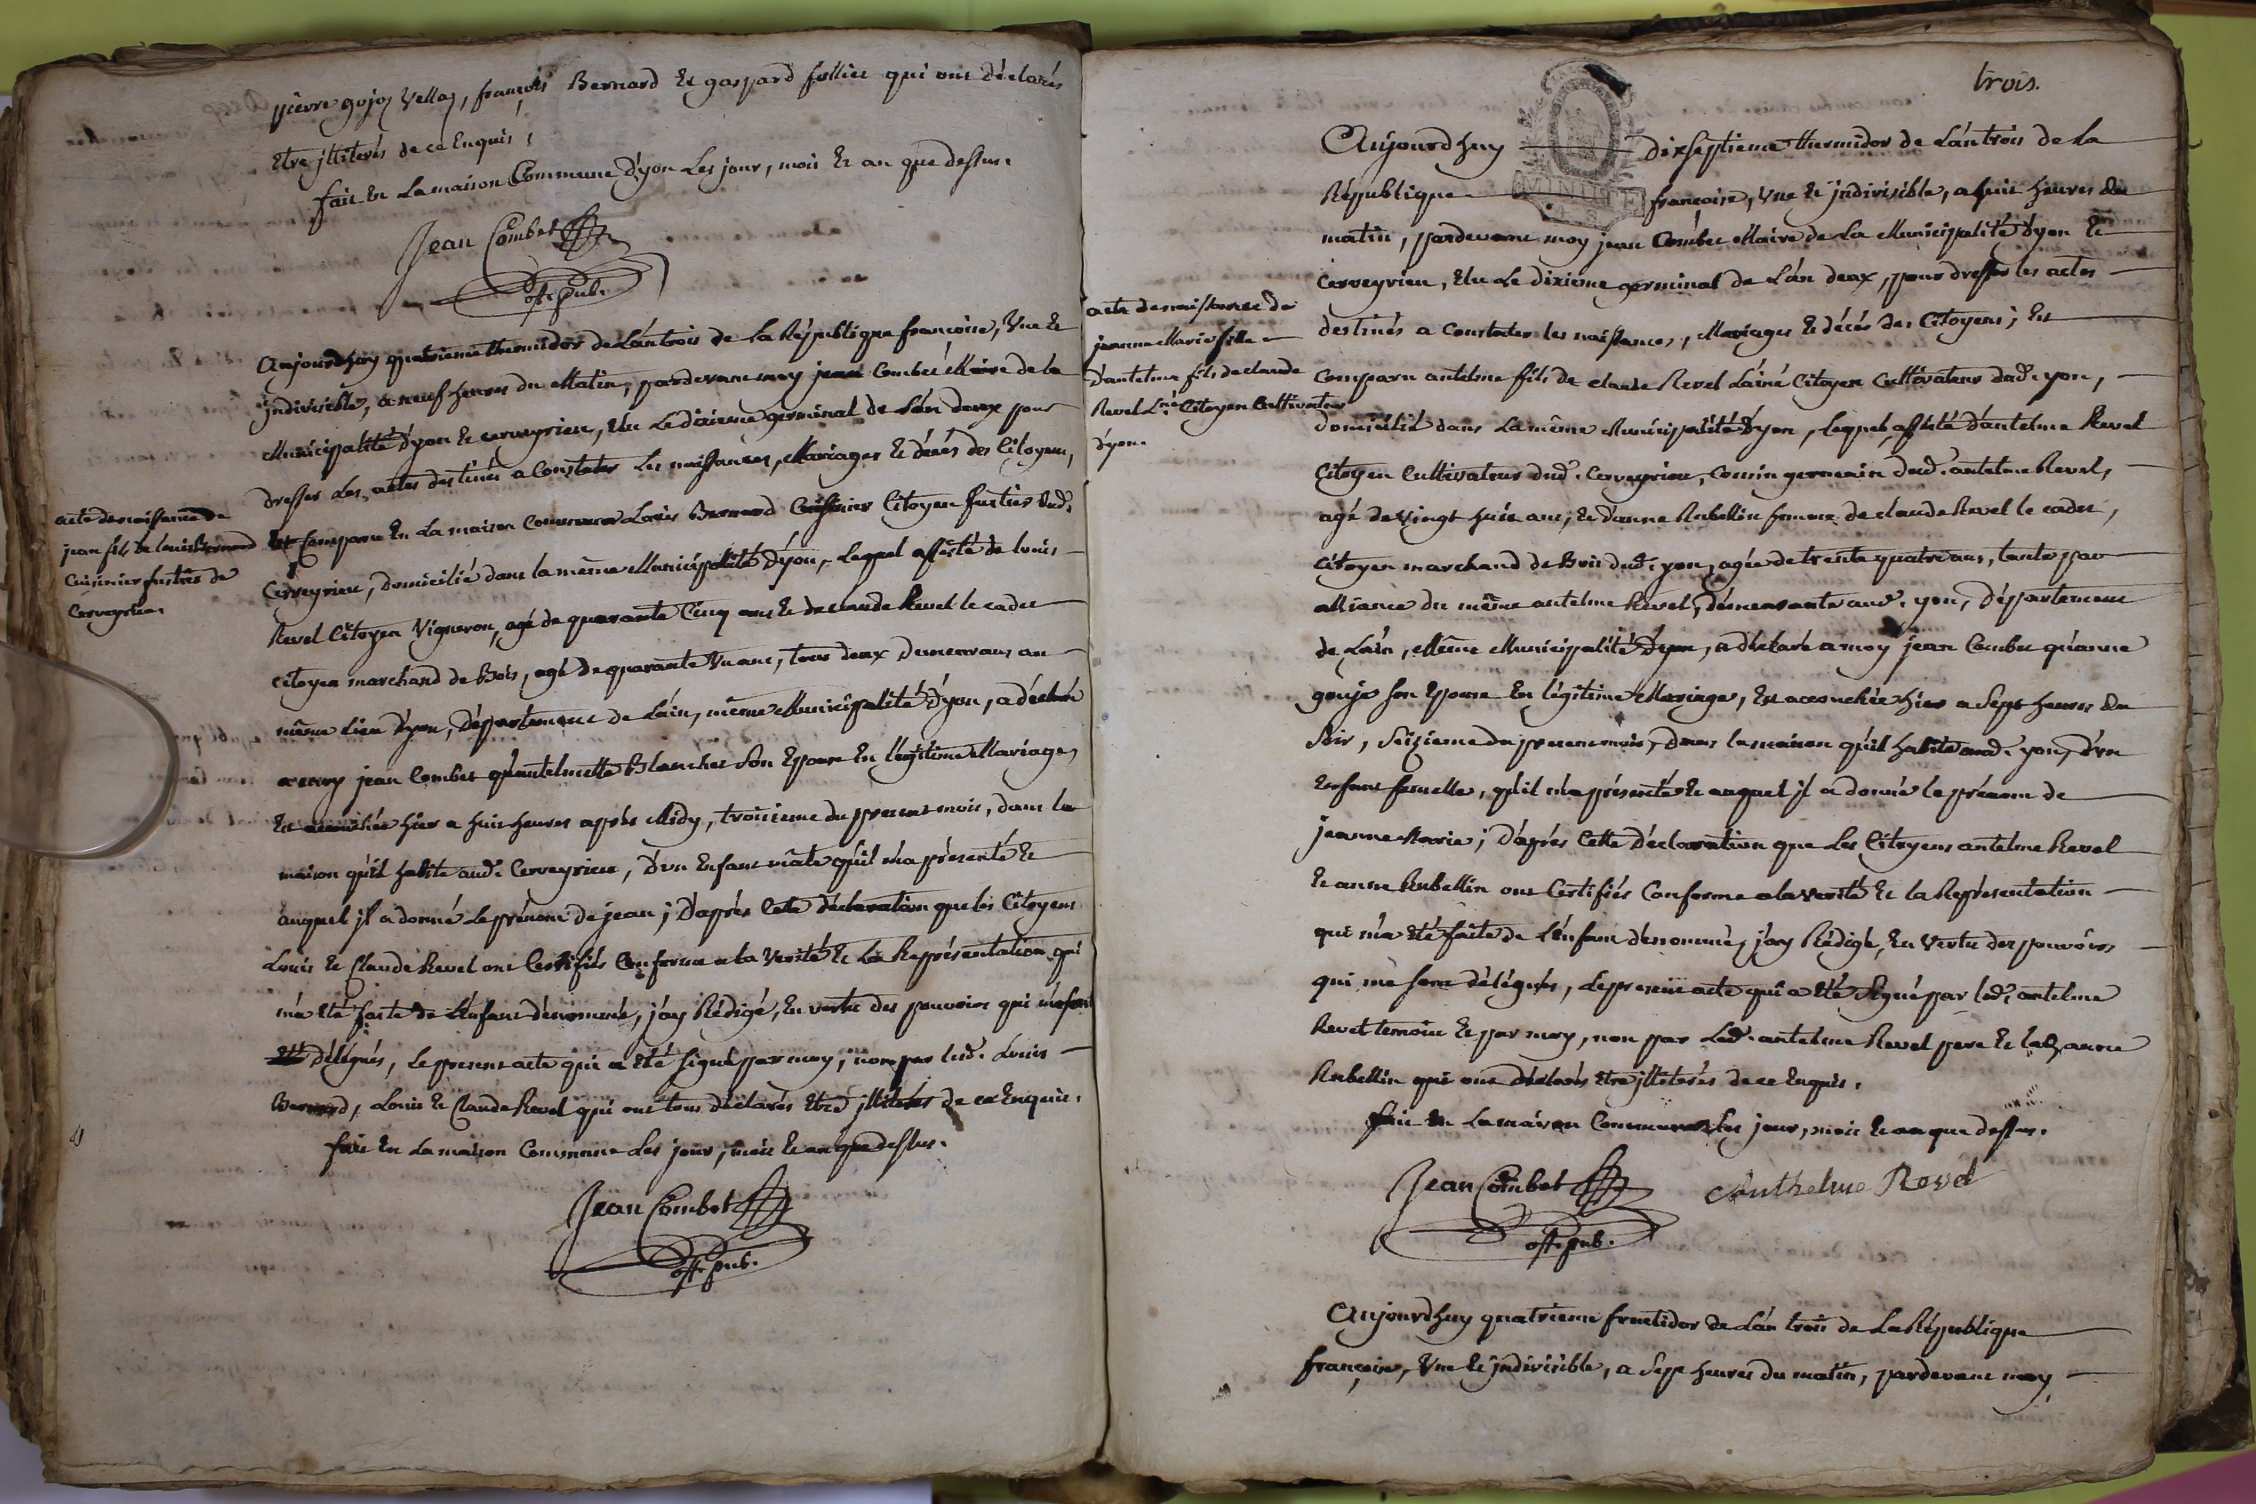 pierre gojoz Vellaz, françois Bernard Et gaspard follier qui ont Déclarés
Etre jlliterés de ce Enquis,
fait En La maison Commune D'yon Les jour, mois Et an que dessus.
Jean Combet
off. pub.
Aujourdhuy quatrieme thermidor de L'an trois de La République françoise, Vne Et
jndivisible, a neuf heures du Matin, pardevant moy jean Combet Maire de la
Municipalité d'yon Et cerveyrieu, Elu Le dixieme germinal de L'an deux pour
dresser Les actes destinés a Constater Les naissances, Mariages Et décés des Citoyens,
acte de naissance de
jean fils de louis Bernard
Cuisinier fustier de
Cerveyrieu
Est Comparu En La maison Commune Louis Bernard Cuisinier Citoyen fustier dud.
Cerveyrieu, Domicilié dans la même Municipalité D'yon, Lequel assisté de louis
Revel Citoyen Vigneron, agé de quarante Cinq ans Et de claude Revel le cadet
citoyen marchand de Bois, agé de quarante Vn ans, tous deux Demeurans au
même Lieu D'yon, Département de L'ain, même Municipalité D'yon, a déclaré
a moy jean Combet qu'antelmette Blanchet Son Epouse En légitime Mariage,
Est accouchée hier a huit heures aprés Midy, troisieme du present mois, dans la
maison qu'il habite aud. Cerveyrieu, D'vn Enfant mâle qu'il m'a présenté Et
auquel jl a donné Le prénom de jean; D'aprés Cette déclaration que les Citoyens
Louis Et Claude Revel ont Certifiés Conforme a la Verité Et La Représentation qui
m'a Eté faite de L'Enfant dénommé, j'ay Rédigé, En vertu des pouvoirs qui me sont
délégués, Le present acte qui a Eté Signé par moy, non par led. Louis
Bernard, Louis Et Claude Revel qui ont tous déclarés Etre jlliterés de ce Enquis.
fait En La maison Commune Les jour, mois Et an que dessus.
Jean Combet
off. pub.
trois.
MINUTE
Aujourdhuy dixseptieme thermidor de L'an trois de La
République françoise, Vne Et jndivisible, a huit heures du
matin, pardevant moy jean Combet Maire de La Municipalité d'yon Et
Cerveyrieu, Elu Le dixieme germinal de L'an deux, pour dresser les actes
destinés a Constater les naissances, Mariages Et décés des Citoyens; Est
acte de naissance de
jeanne Marie fille
d'antelme fils de claude
Revel L.né Citoyen Cultivateur
d'yon.
Comparu antelme fils de claude Revel L'ainé Citoyen Cultivateur dud. yon,
domicilié dans La même Municipalité D'yon, lequel assisté d'antelme Revel
Citoyen Cultivateur dud. Cerveyrieu, Cousin germain dud. antelme Revel,
agé de vingt huit ans, Et d'anne Rubellin femme de claude Revel le cadet,
Citoyen marchand de Bois dud. yon, agée de trente quatre ans, tante par
alliance du même antelme Revel, demeurante aud. yon, Département
de L'ain, Même Municipalité D'yon, a déclaré a moy jean Combet qu'anne
goujo son Epouse En légitime Mariage, Est accouchée hier a Sept heures du
Soir, Seizieme du present mois, Dans la maison qu'il habite aud. yon, D'vn
Enfant femelle, qu'il m'a présenté Et auquel jl a donné le prénom de
jeanne Marie; D'aprés Cette Déclaration que Les Citoyens antelme Revel
Et anne Rubellin ont Certifiés Conforme a la Verité Et la Représentation
qui m'a Eté faite de L'Enfant dénommé, j'ay Rédigé, En Vertu des pouvoirs
qui me sont délégués, Le present acte qui a Eté Signé par led. antelme
Revel temoin Et par moy, non par Led. antelme Revel pere Et lad. anne
Rubellin qui ont déclarés Etre jlliterés de ce Enquis.
fait En La maison Commune Les jour, mois Et an que dessus.
Jean Combet Anthelme Revel
off. pub.
Aujourdhuy quatrieme fructidor de L'an trois de La République
françoise, Vne Et jndivisible, a Sept heures du matin, pardevant moy